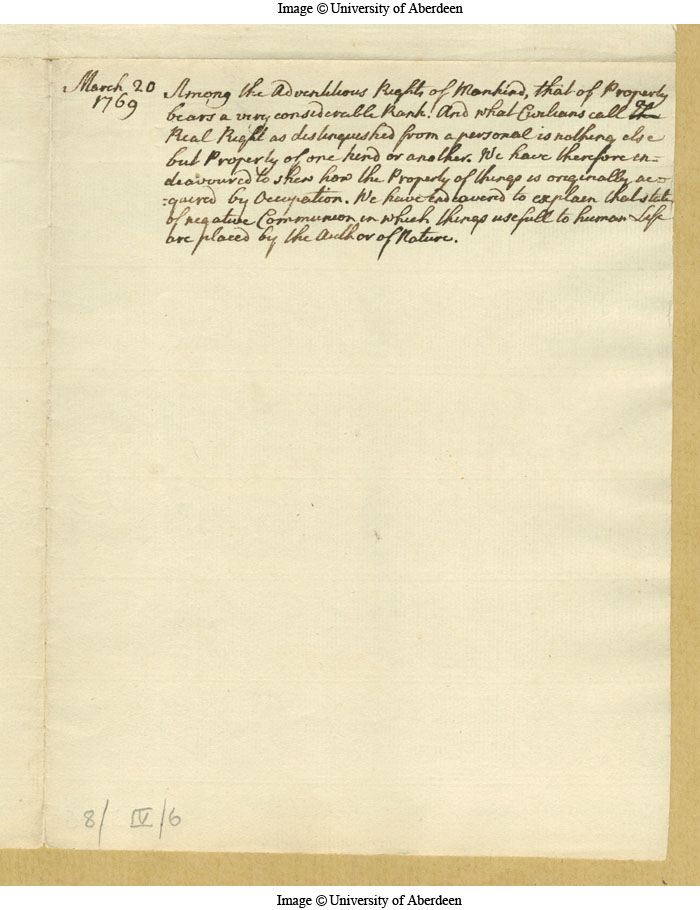 Image © University of Aberdeen
March 20
1769
Among the Adventitious Rights of Mankind, that of Property
bears a very considerable Rank. And what Civilians call
Real Right as distinguished from a personal is nothing else
but Property of one kind or another. We have therefore in=
deavoured to shew how the Property of things is originally ac=
=quired by Occupation. We have endeavored to explain that state
of negative Communion in which things usefull to human Life
are placed by the Author of Nature.
8/ IV/6
Image © University of Aberdeen